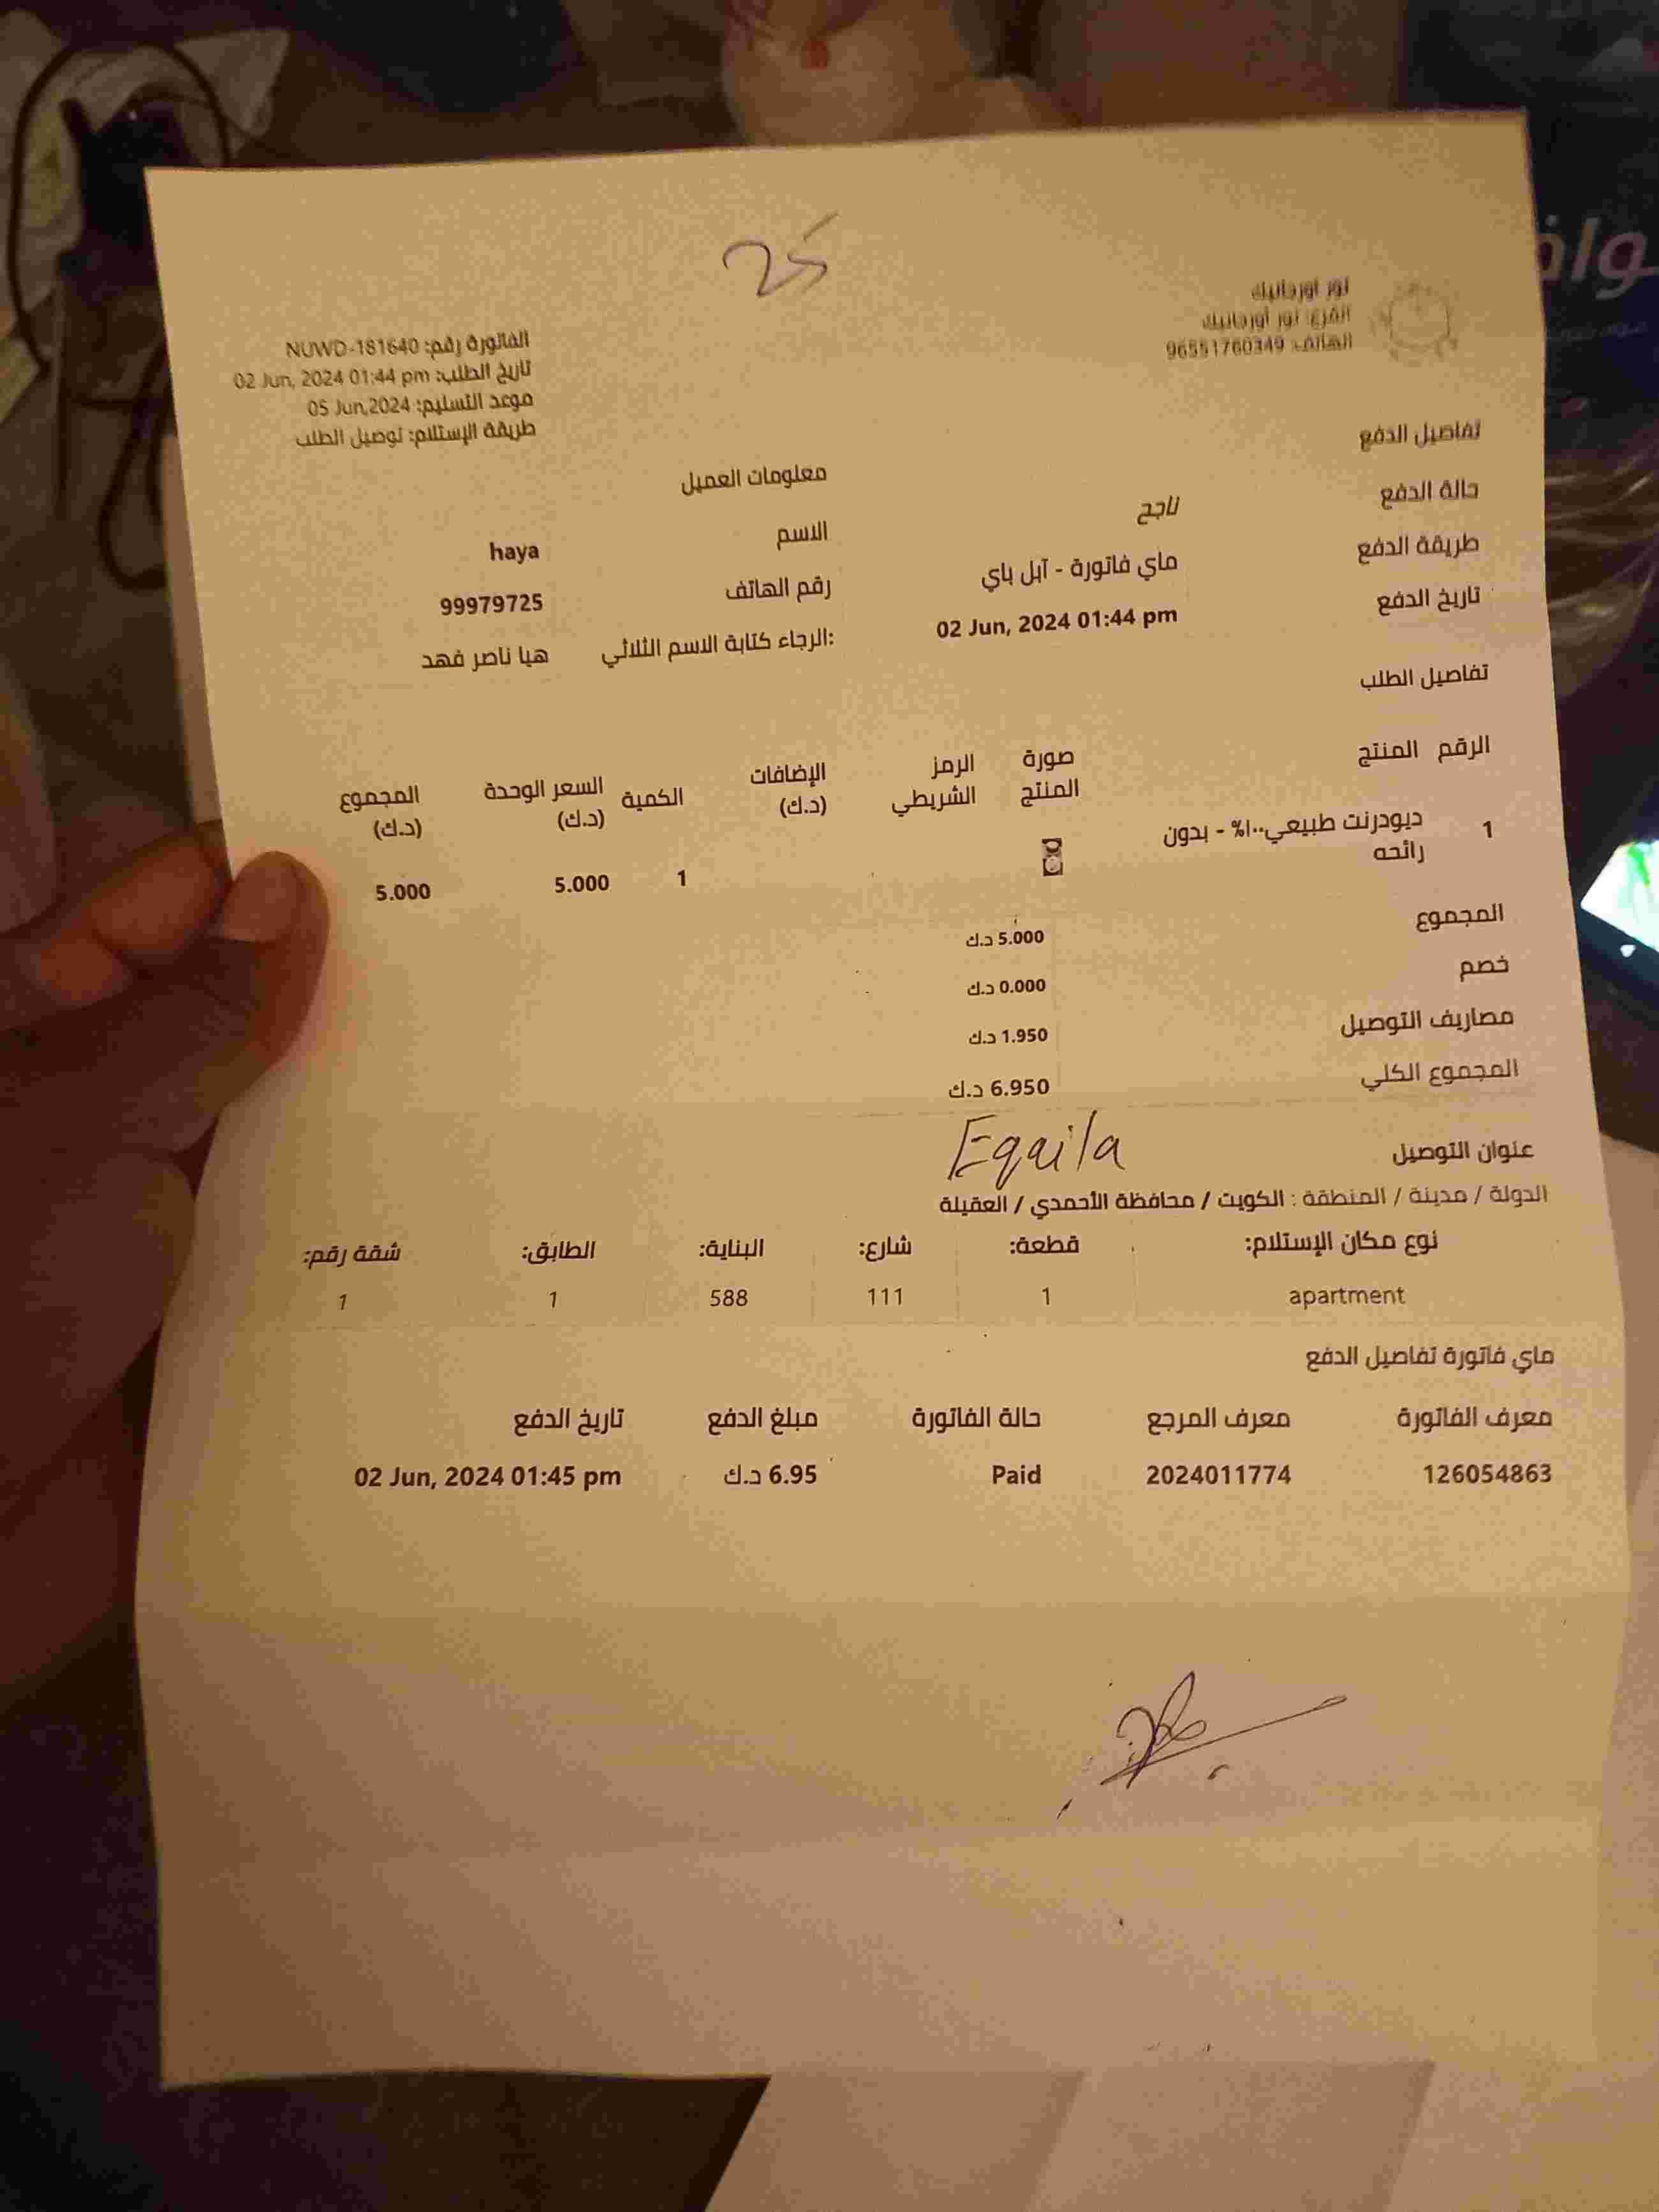 25
نور أورجانيك
الفرع: نور أورجانيك
الهاتف: 96551760349
الفاتورة رقم: NUWD-181640
تاريخ الطلب: 02 Jun, 2024 01:44 pm
موعد التسليم: 05 Jun,2024
طريقة الإستلام: توصيل الطلب
تفاصيل الدفع
حالة الدفع ناجح
طريقة الدفع ماي فاتورة - آبل باي
تاريخ الدفع 02 Jun, 2024 01:44 pm
معلومات العميل
الاسم haya
رقم الهاتف 99979725
الرجاء كتابة الاسم الثلاثي: هيا ناصر فهد
تفاصيل الطلب
الرقم المنتج صورة المنتج الرمز الشريطي الإضافات (د.ك) الكمية السعر الوحدة (د.ك) المجموع (د.ك)
1 ديودرنت طبيعي١٠٠% - بدون رائحه 1 5.000 5.000
المجموع 5.000 د.ك
خصم 0.000 د.ك
مصاريف التوصيل 1.950 د.ك
المجموع الكلي 6.950 د.ك
Eqaila
عنوان التوصيل
الدولة / مدينة / المنطقة : الكويت / محافظة الأحمدي / العقيلة
نوع مكان الإستلام: قطعة: شارع: البناية: الطابق: شقة رقم:
apartment 1 111 588 1 1
ماي فاتورة تفاصيل الدفع
معرف الفاتورة معرف المرجع حالة الفاتورة مبلغ الدفع تاريخ الدفع
126054863 2024011774 Paid 6.95 د.ك 02 Jun, 2024 01:45 pm